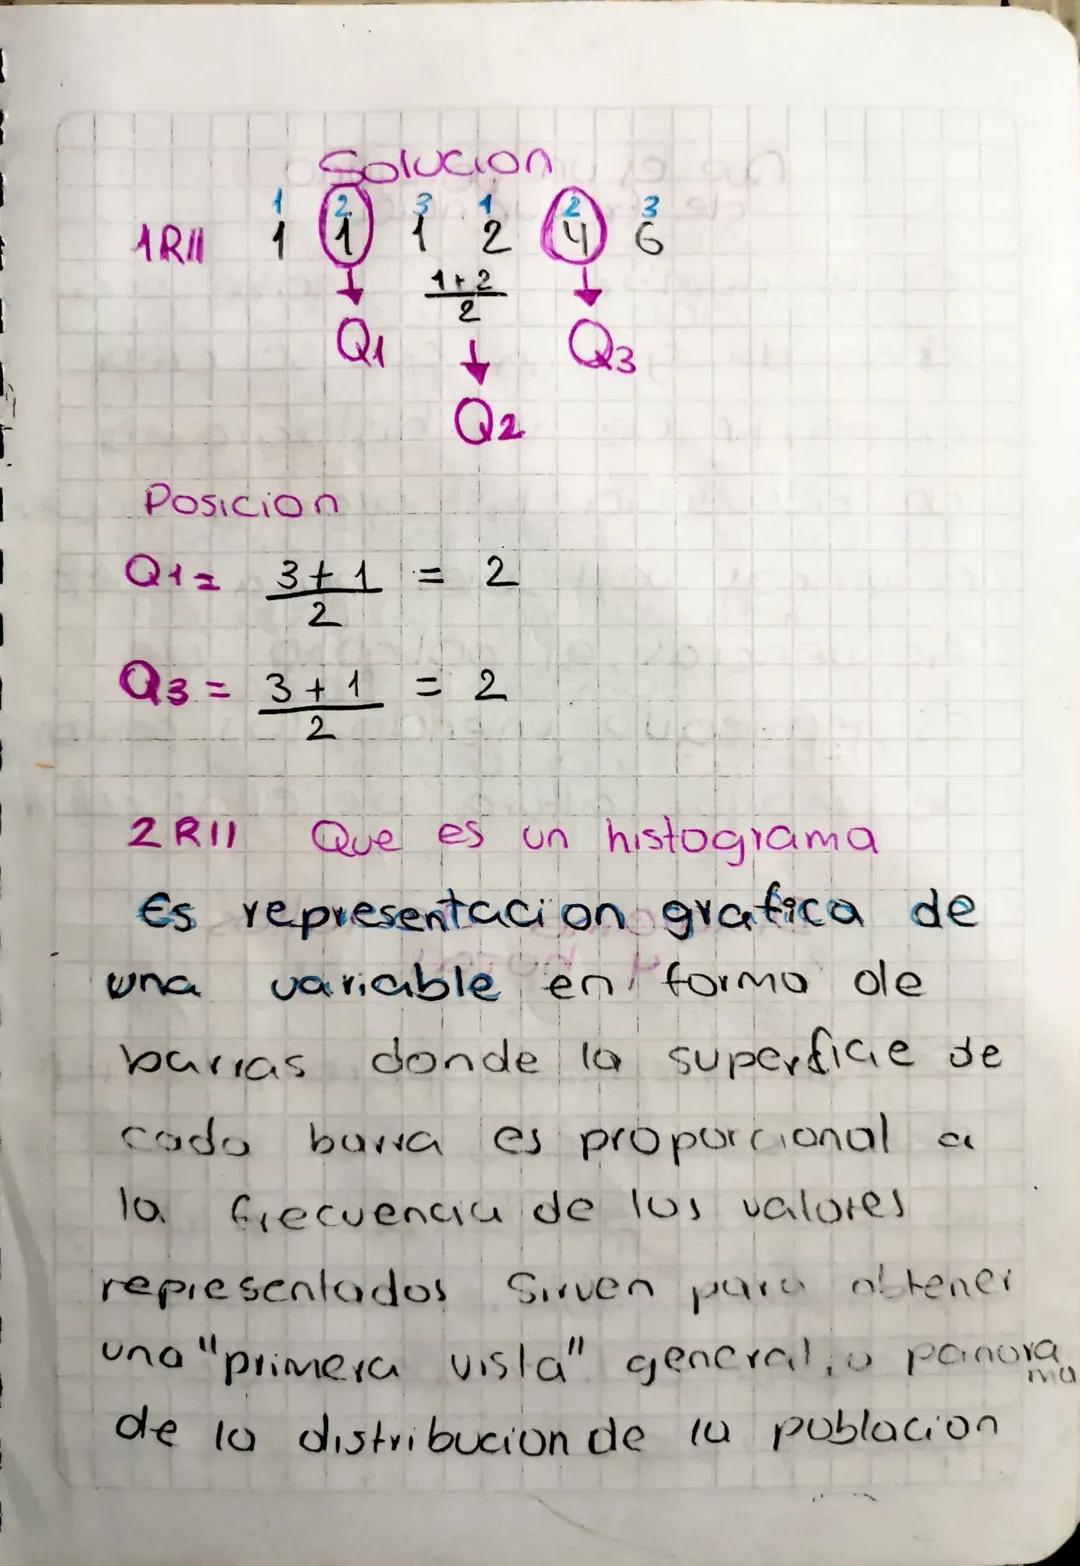 Solucion
1 2 3 1 2 3
1R// 1 1 1 2 4 6
1+2
2
Q1 Q3
Q2
Posicion
Q1= 3+1 = 2
2
Q3= 3+1 = 2
2
2R// Que es un histograma
Es representacion grafica de
una variable en forma de
barras donde la superficie de
cada barra es proporcional a
la frecuencia de los valores
representados Sirven para obtener
una "primera vista" general, o panorama
de la distribucion de la poblacion